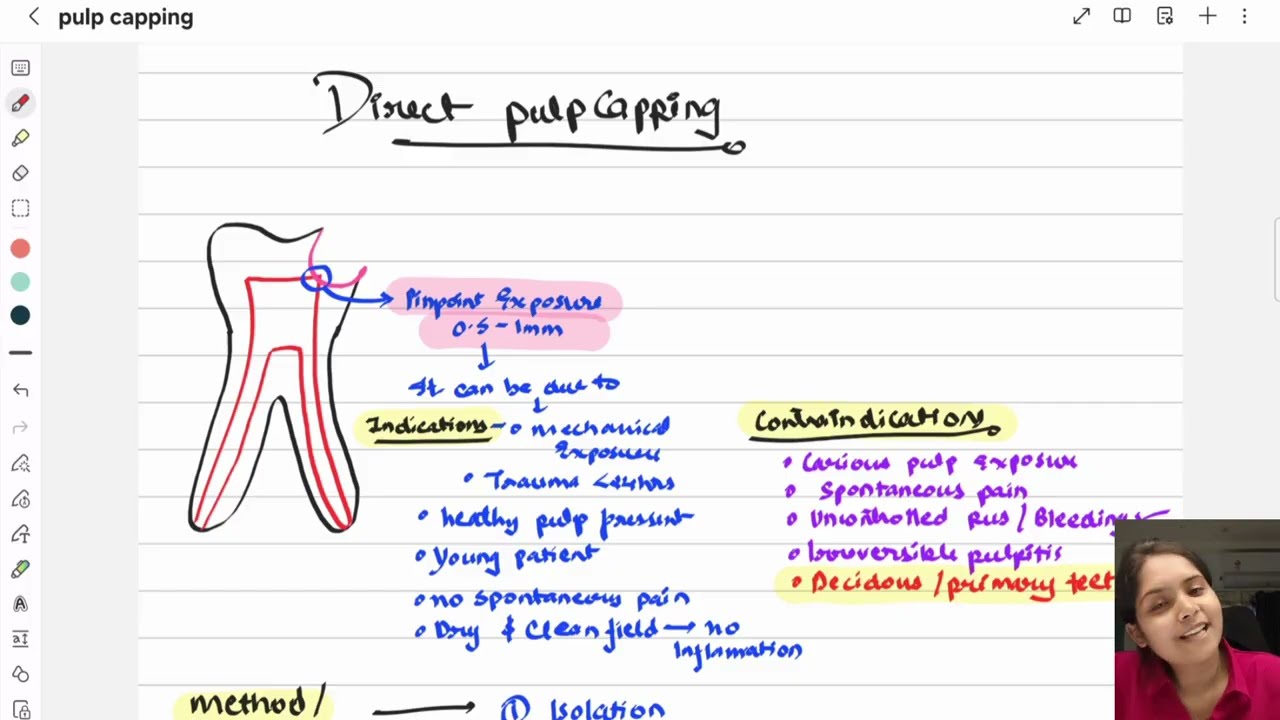 pulp capping
Direct pulp capping
Pinpoint Exposure
0.5 - 1mm
It can be due to
Indications - mechanical
Exposure
Trauma <24hrs
healthy pulp present
Young patient
no spontaneous pain
Dry & Clean field → no
Inflamation
Contraindication
Carious pulp Exposure
Spontaneous pain
Uncontrolled pus / Bleeding
Irreversible pulpitis
Decidous / primary teet
method /
① Isolation